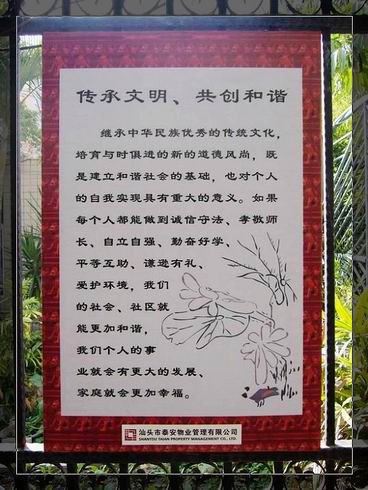 传承文明、共创和谐
继承中华民族优秀的传统文化，
培育与时俱进的新的道德风尚，既
是建立和谐社会的基础，也对个人
的自我实现具有重大的意义。如果
每个人都能做到诚信守法、孝敬师
长、自立自强、勤奋好学、
平等互助、谦逊有礼、
爱护环境，我们
的社会、社区就
能更加和谐，
我们个人的事
业就会有更大的发展、
家庭就会更加幸福。
汕头市泰安物业管理有限公司
SHANTOU TAIAN PROPERTY MANAGEMENT CO., LTD.